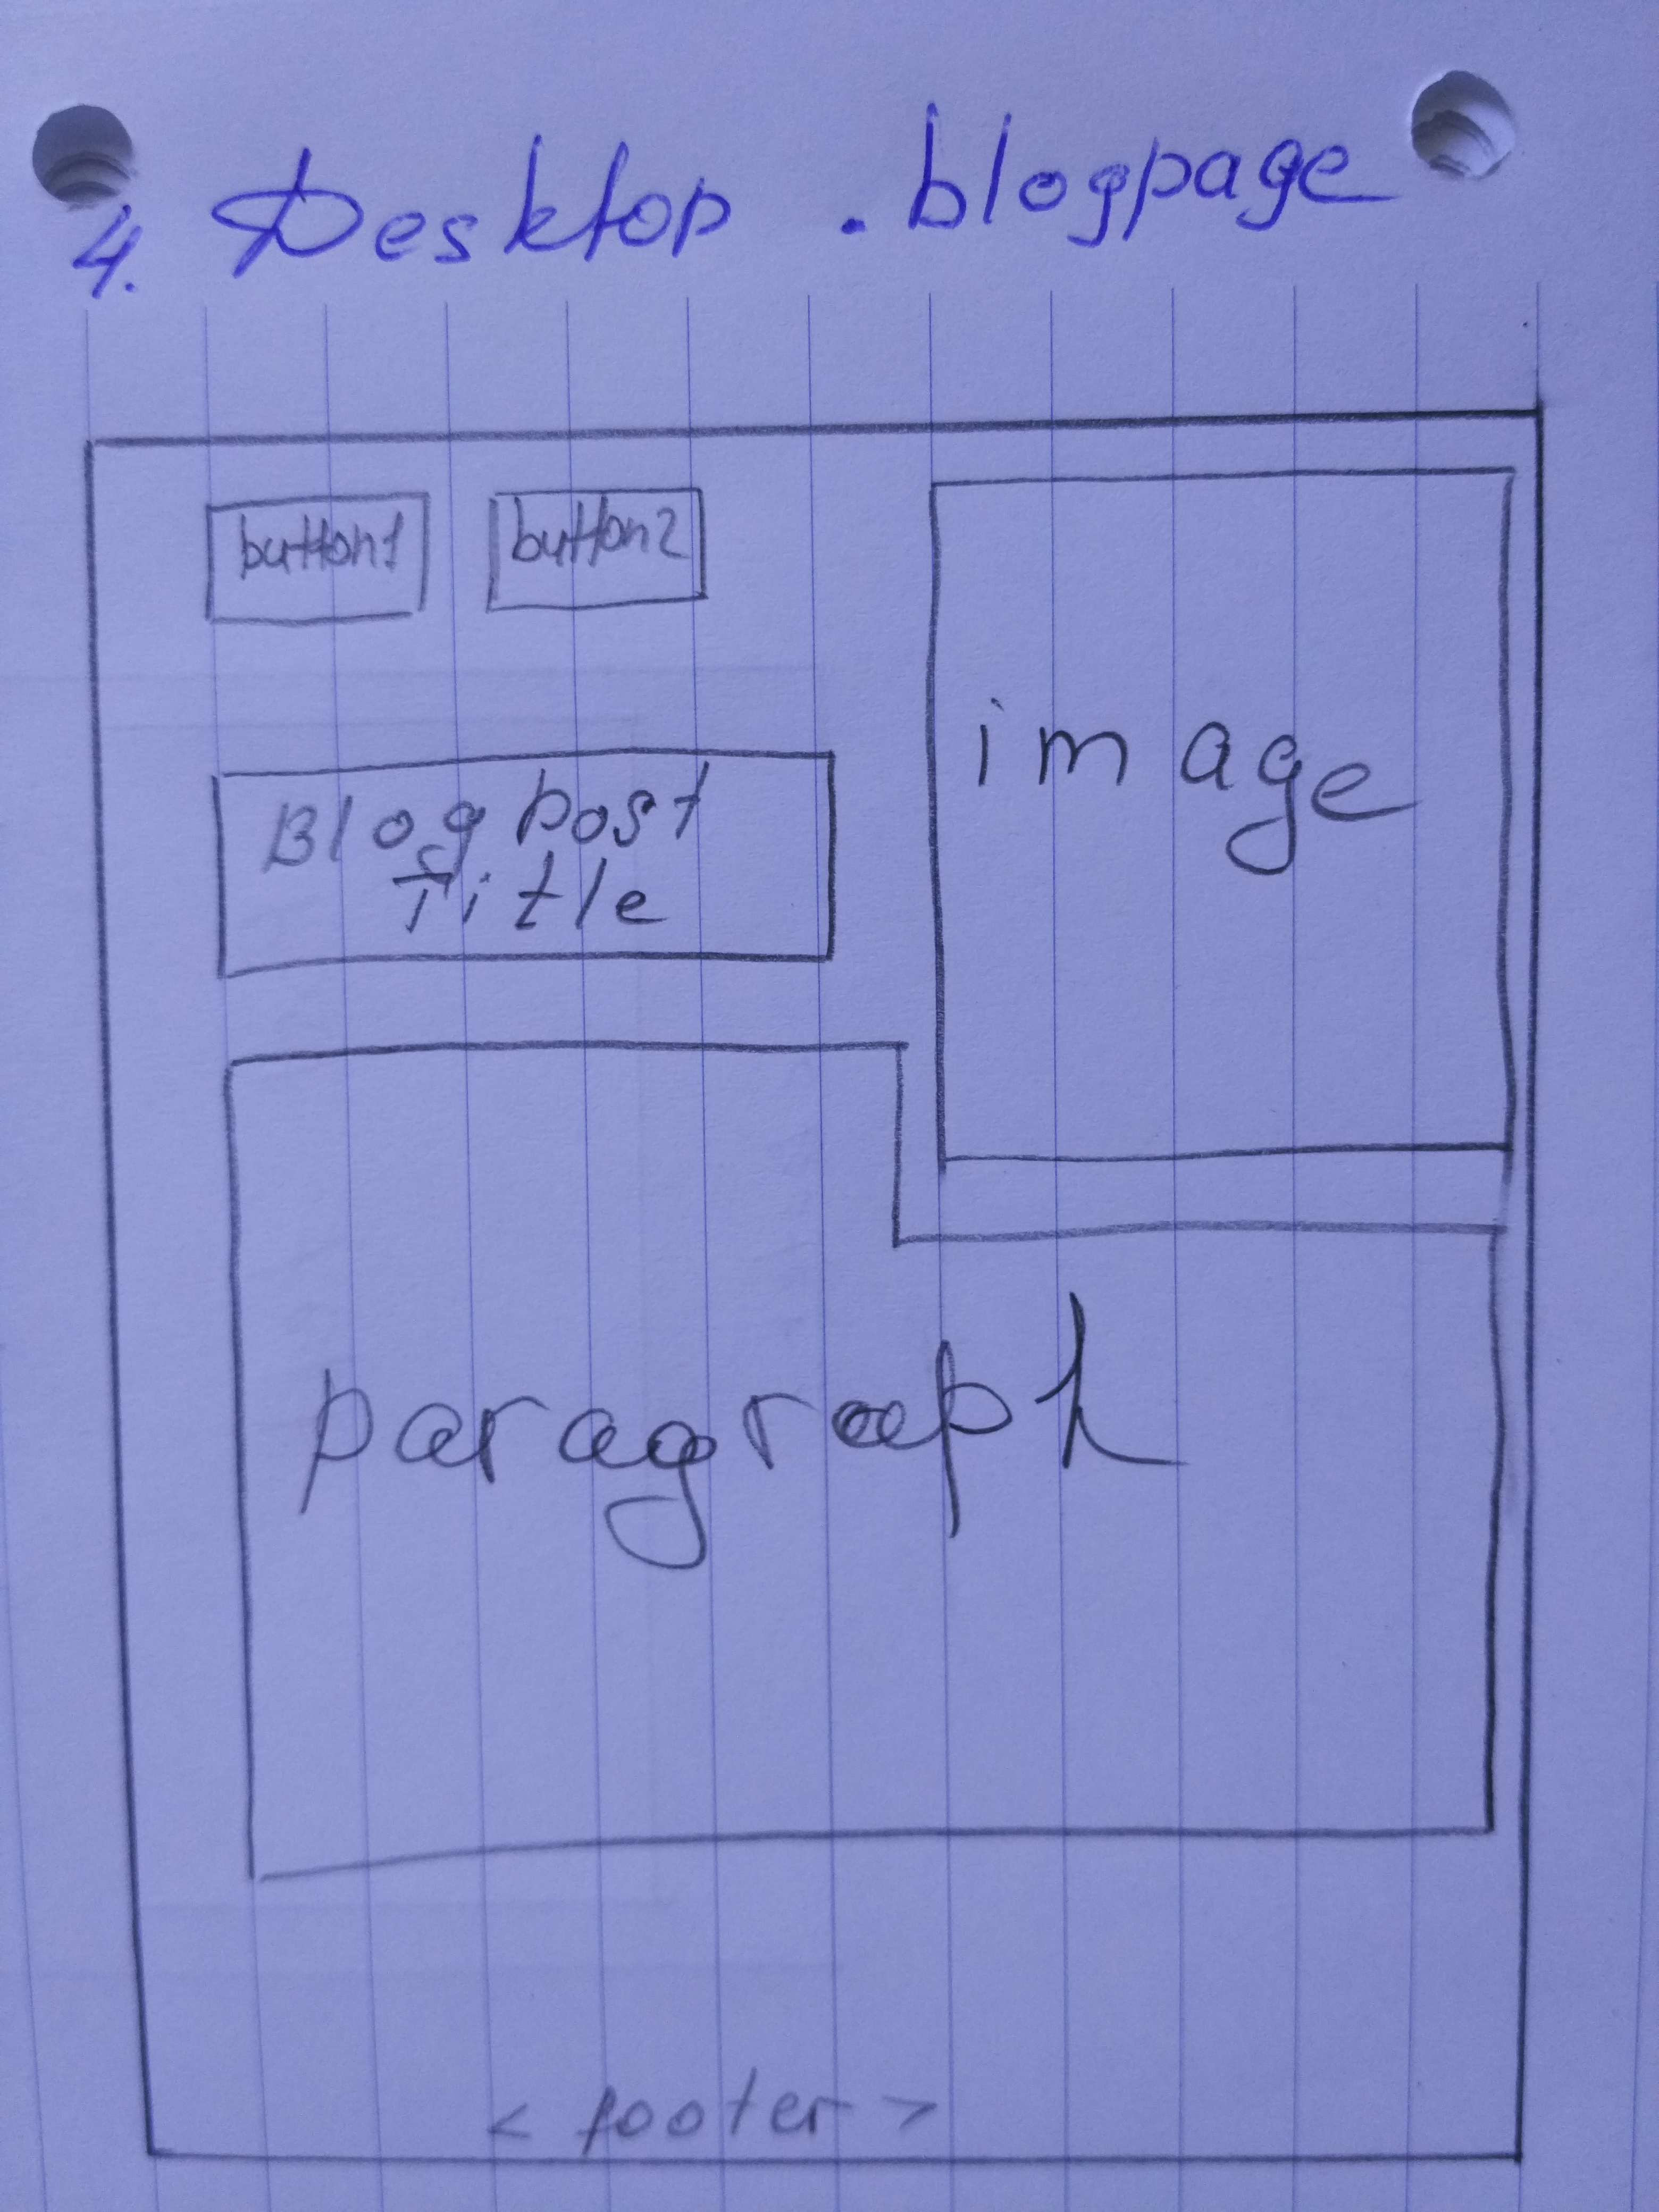 4. Desktop . blogpage
button1 button2
image
Blog post
Title
paragraph
< footer >